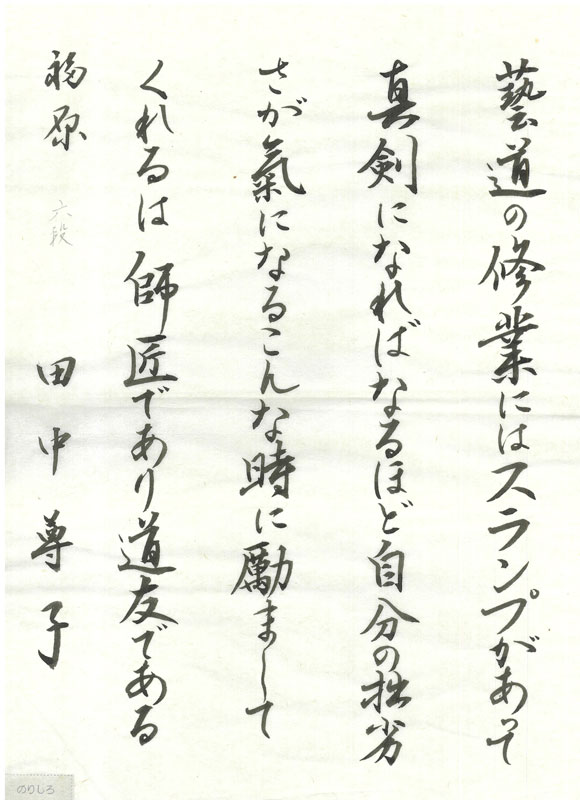 藝道の修業にはスランプがあって
真剣になればなるほど自分の拙劣
さが氣になるこんな時に励まして
くれるは師匠であり道友である
福原 六段 田中尊子
のりしろ